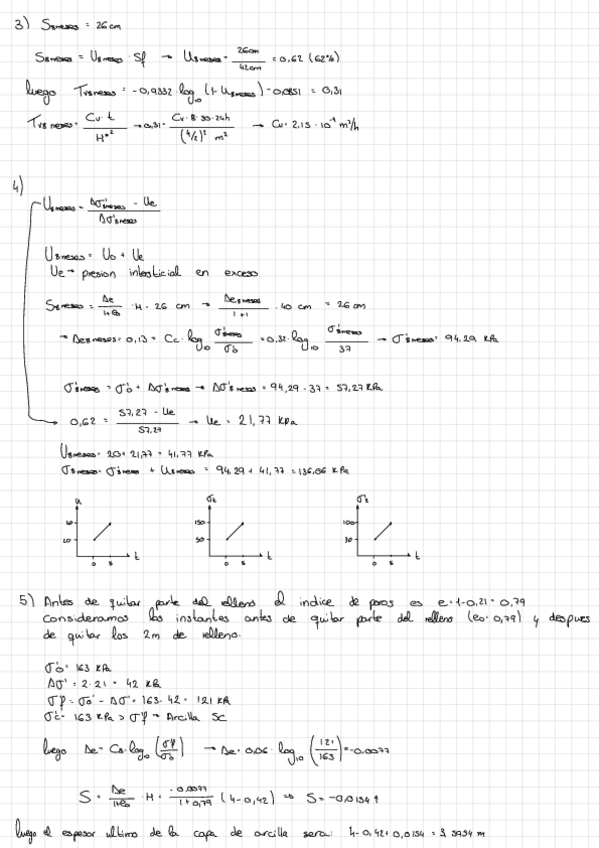 3) S8meses = 26cm
S8meses = U8meses · Sf → U8meses = 26cm / 42cm = 0,62 (62%)
luego Tv8meses = -0,9332 log10 (1-U8meses) - 0,0851 = 0,31
Tv8meses = Cv·t / H*² → 0,31 = Cv·8·30·24h / (4/2)² m² → Cv = 2.15·10⁻⁴ m²/h
4)
U8meses = Δσ'8meses - Ue / Δσ'8meses
U8meses = U0 + Ue
Ue → presion intersticial en exceso
S8meses = Δe / 1+e0 · H = 26 cm → Δe8meses / 1+1 · 40 cm = 26 cm
→ Δe8meses = 0,13 = Cc · log10 σ'8meses / σ'0 = 0.32 · log10 σ'8meses / 37 → σ'8meses = 94.29 kPa
σ'8meses = σ'0 + Δσ'8meses → Δσ'8meses = 94,29 - 37 = 57,27 kPa
0,62 = 57,27 - Ue / 57,27 → Ue = 21,77 kPa
U8meses = 20 + 21,77 = 41,77 kPa
σ8meses = σ'8meses + U8meses = 94.29 + 41,77 = 136,06 kPa
u
20
0 8 t
150
50
0 8 t
100
0 8 t
5) Antes de quitar parte del relleno el indice de poros es e = 1-0,21 = 0,79
Consideramos los instantes antes de quitar parte del relleno (e0 = 0,79) y despues
de quitar los 2m de relleno.
σ'0 = 163 kPa
Δσ' = 2·21 = 42 kPa
σ'f = σ'0 - Δσ' = 163 - 42 = 121 kPa
σ'c = 163 kPa > σ'f → Arcilla SC
luego Δe = Cs·log10 (σ'f / σ'0) → Δe = 0,06 · log10 (121 / 163) = -0,0077
S = Δe / 1+e0 · H = -0,0077 / 1+0,79 (4-0,42) ⇒ S = -0,0154
luego el espesor ultimo de la capa de arcilla sera: 4-0,42+0,0154 = 3,5954 m